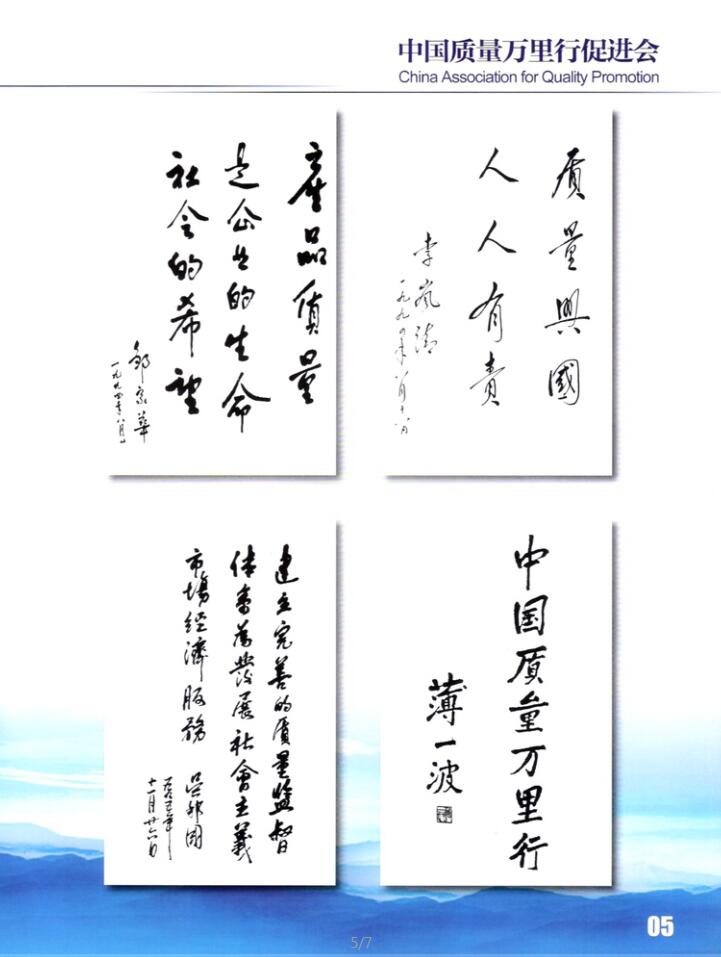 中国质量万里行促进会
China Association for Quality Promotion
產品質量
是企业的生命
社会的希望
邹家華
一九九四年八月
质量興國
人人有責
李岚清
一九九四年八月十八日
建立完善的质量監督
体系為發展社會主義
市場經濟服務
吴邦国
一九九五年
十一月廿六日
中国质量万里行
薄一波
05
5/7